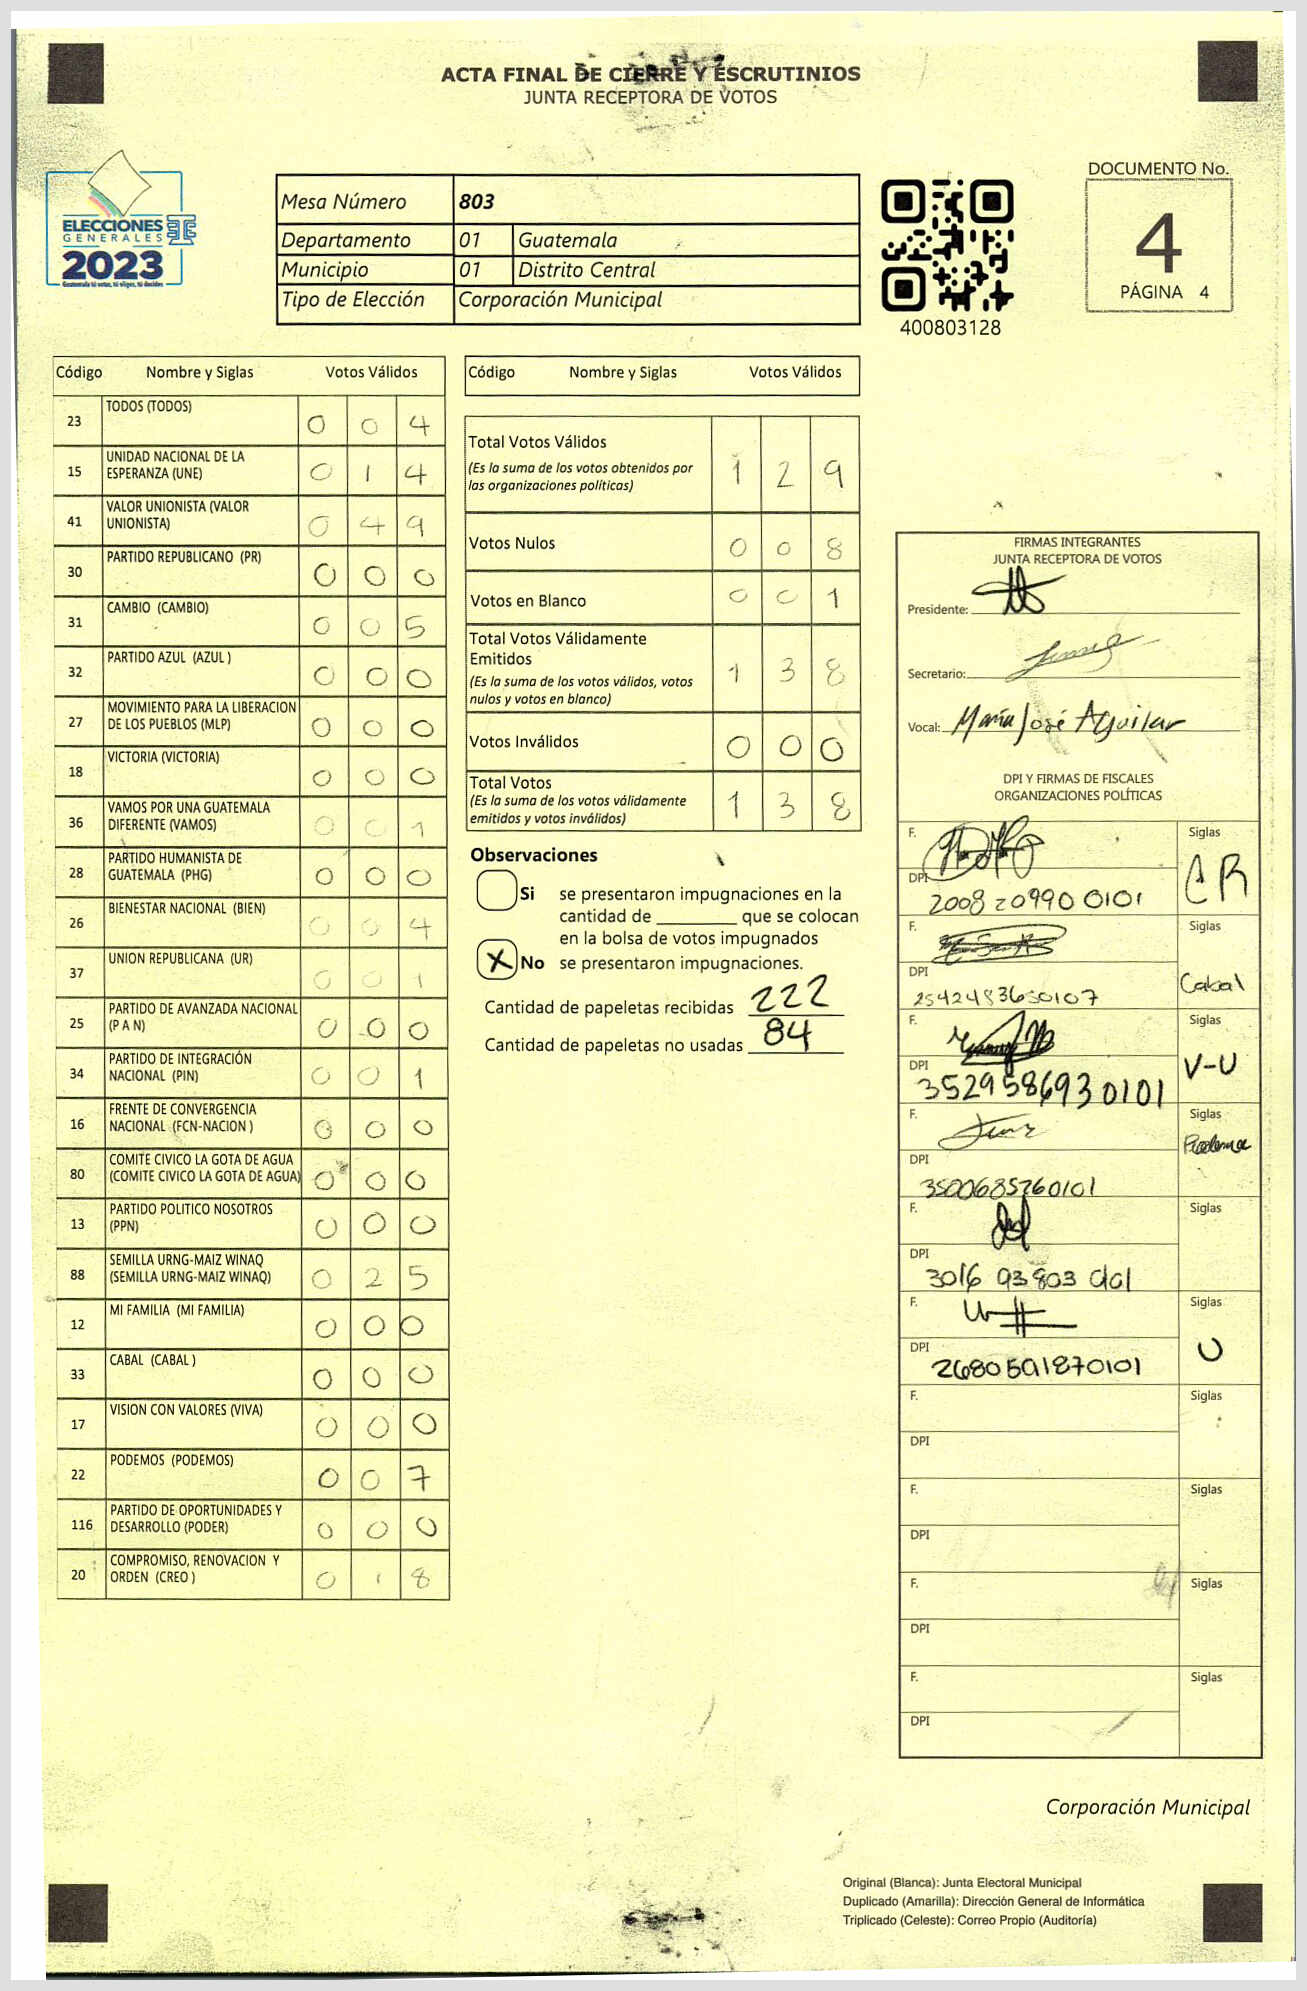 ACTA FINAL DE CIERRE Y ESCRUTINIOS
JUNTA RECEPTORA DE VOTOS
ELECCIONES
GENERALES
2023
Guatemala tú votas, tú eliges, tú decides
Mesa Número 803
Departamento 01 Guatemala
Municipio 01 Distrito Central
Tipo de Elección Corporación Municipal
400803128
DOCUMENTO No.
4
PÁGINA 4
Código Nombre y Siglas Votos Válidos
23 TODOS (TODOS) 0 0 4
15 UNIDAD NACIONAL DE LA
ESPERANZA (UNE) 0 1 4
41 VALOR UNIONISTA (VALOR
UNIONISTA) 0 4 9
30 PARTIDO REPUBLICANO (PR) 0 0 0
31 CAMBIO (CAMBIO) 0 0 5
32 PARTIDO AZUL (AZUL ) 0 0 0
27 MOVIMIENTO PARA LA LIBERACION
DE LOS PUEBLOS (MLP) 0 0 0
18 VICTORIA (VICTORIA) 0 0 0
36 VAMOS POR UNA GUATEMALA
DIFERENTE (VAMOS) 0 0 1
28 PARTIDO HUMANISTA DE
GUATEMALA (PHG) 0 0 0
26 BIENESTAR NACIONAL (BIEN) 0 0 4
37 UNION REPUBLICANA (UR) 0 0 1
25 PARTIDO DE AVANZADA NACIONAL
(P A N) 0 0 0
34 PARTIDO DE INTEGRACIÓN
NACIONAL (PIN) 0 0 1
16 FRENTE DE CONVERGENCIA
NACIONAL (FCN-NACION ) 0 0 0
80 COMITE CIVICO LA GOTA DE AGUA
(COMITE CIVICO LA GOTA DE AGUA) 0 0 0
13 PARTIDO POLITICO NOSOTROS
(PPN) 0 0 0
88 SEMILLA URNG-MAIZ WINAQ
(SEMILLA URNG-MAIZ WINAQ) 0 2 5
12 MI FAMILIA (MI FAMILIA) 0 0 0
33 CABAL (CABAL ) 0 0 0
17 VISION CON VALORES (VIVA) 0 0 0
22 PODEMOS (PODEMOS) 0 0 7
116 PARTIDO DE OPORTUNIDADES Y
DESARROLLO (PODER) 0 0 0
20 COMPROMISO, RENOVACION Y
ORDEN (CREO ) 0 1 8
Código Nombre y Siglas Votos Válidos
Total Votos Válidos
(Es la suma de los votos obtenidos por
las organizaciones políticas) 1 2 9
Votos Nulos 0 0 8
Votos en Blanco 0 0 1
Total Votos Válidamente
Emitidos
(Es la suma de los votos válidos, votos
nulos y votos en blanco) 1 3 8
Votos Inválidos 0 0 0
Total Votos
(Es la suma de los votos válidamente
emitidos y votos inválidos) 1 3 8
Observaciones
Si se presentaron impugnaciones en la
cantidad de ________ que se colocan
en la bolsa de votos impugnados
X No se presentaron impugnaciones.
Cantidad de papeletas recibidas 222
Cantidad de papeletas no usadas 84
FIRMAS INTEGRANTES
JUNTA RECEPTORA DE VOTOS
Presidente:
Secretario:
Vocal: María José Aguilar
DPI Y FIRMAS DE FISCALES
ORGANIZACIONES POLÍTICAS
F. Siglas
CR
DPI
2008 20990 0101
F. Siglas
Cabal
DPI
2542483650107
F. Siglas
V-U
DPI
3529586930101
F. Siglas
DPI
3500685260101
F. Siglas
DPI
3016 93803
F. Siglas
U
DPI
2680501870101
F. Siglas
DPI
F. Siglas
DPI
F. Siglas
DPI
F. Siglas
DPI
Corporación Municipal
Original (Blanca): Junta Electoral Municipal
Duplicado (Amarilla): Dirección General de Informática
Triplicado (Celeste): Correo Propio (Auditoría)